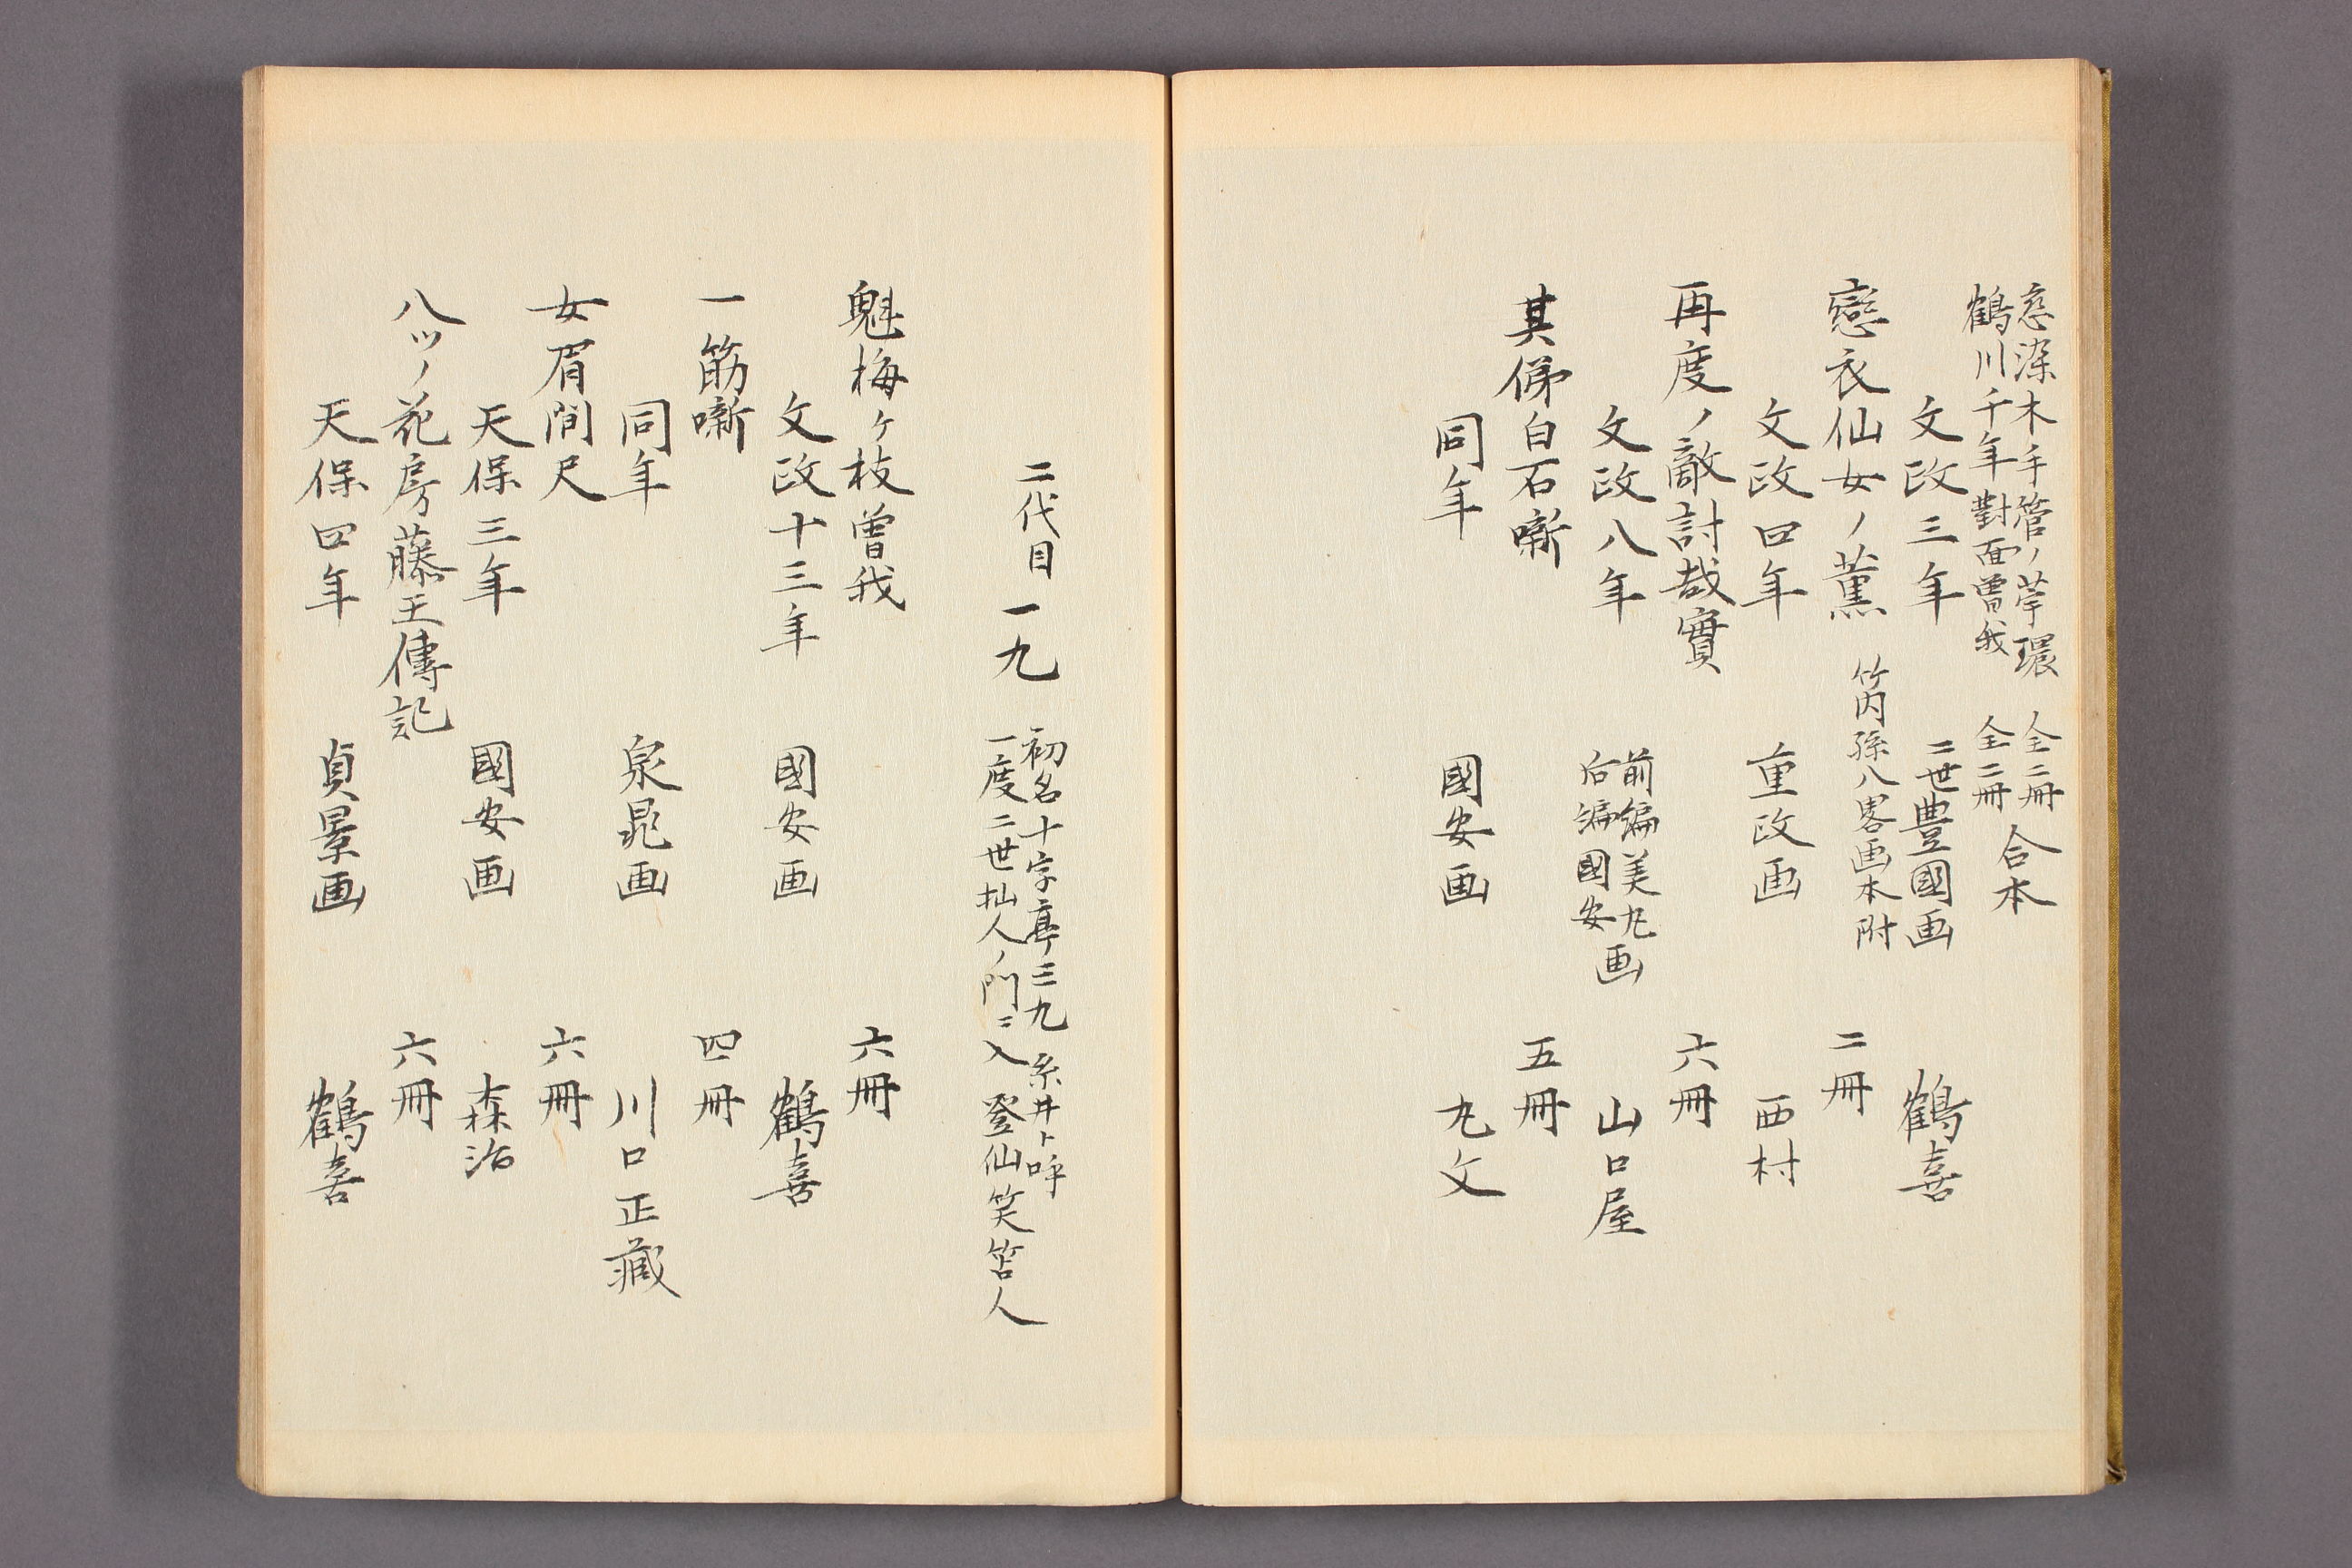 恋染木手管ノ苧環 全二冊
鶴川千年對面曽我 全二冊 合本
文政三年 二世豊國画 鶴喜
戀衣仙女ノ薫 筒孫八畧画本附 二冊
文政四年 重政画 西村
再度ノ敵討哉實 六冊
文政八年 前編美丸画 后編國安画 山口屋
其俤白石噺 五冊
同年 國安画 丸文
二代目 一九 初名十字亭三九 糸井ト呼
一度二世拙人ノ門ニ入 登仙笑苫人
魁梅ヶ枝曽我 六冊
文政十三年 國安画 鶴喜
一筋噺 四冊
同年 泉晁画 川口正藏
女眉間尺 六冊
天保三年 國安画 森治
八ツノ花房藤王傳記 六冊
天保四年 貞景画 鶴喜